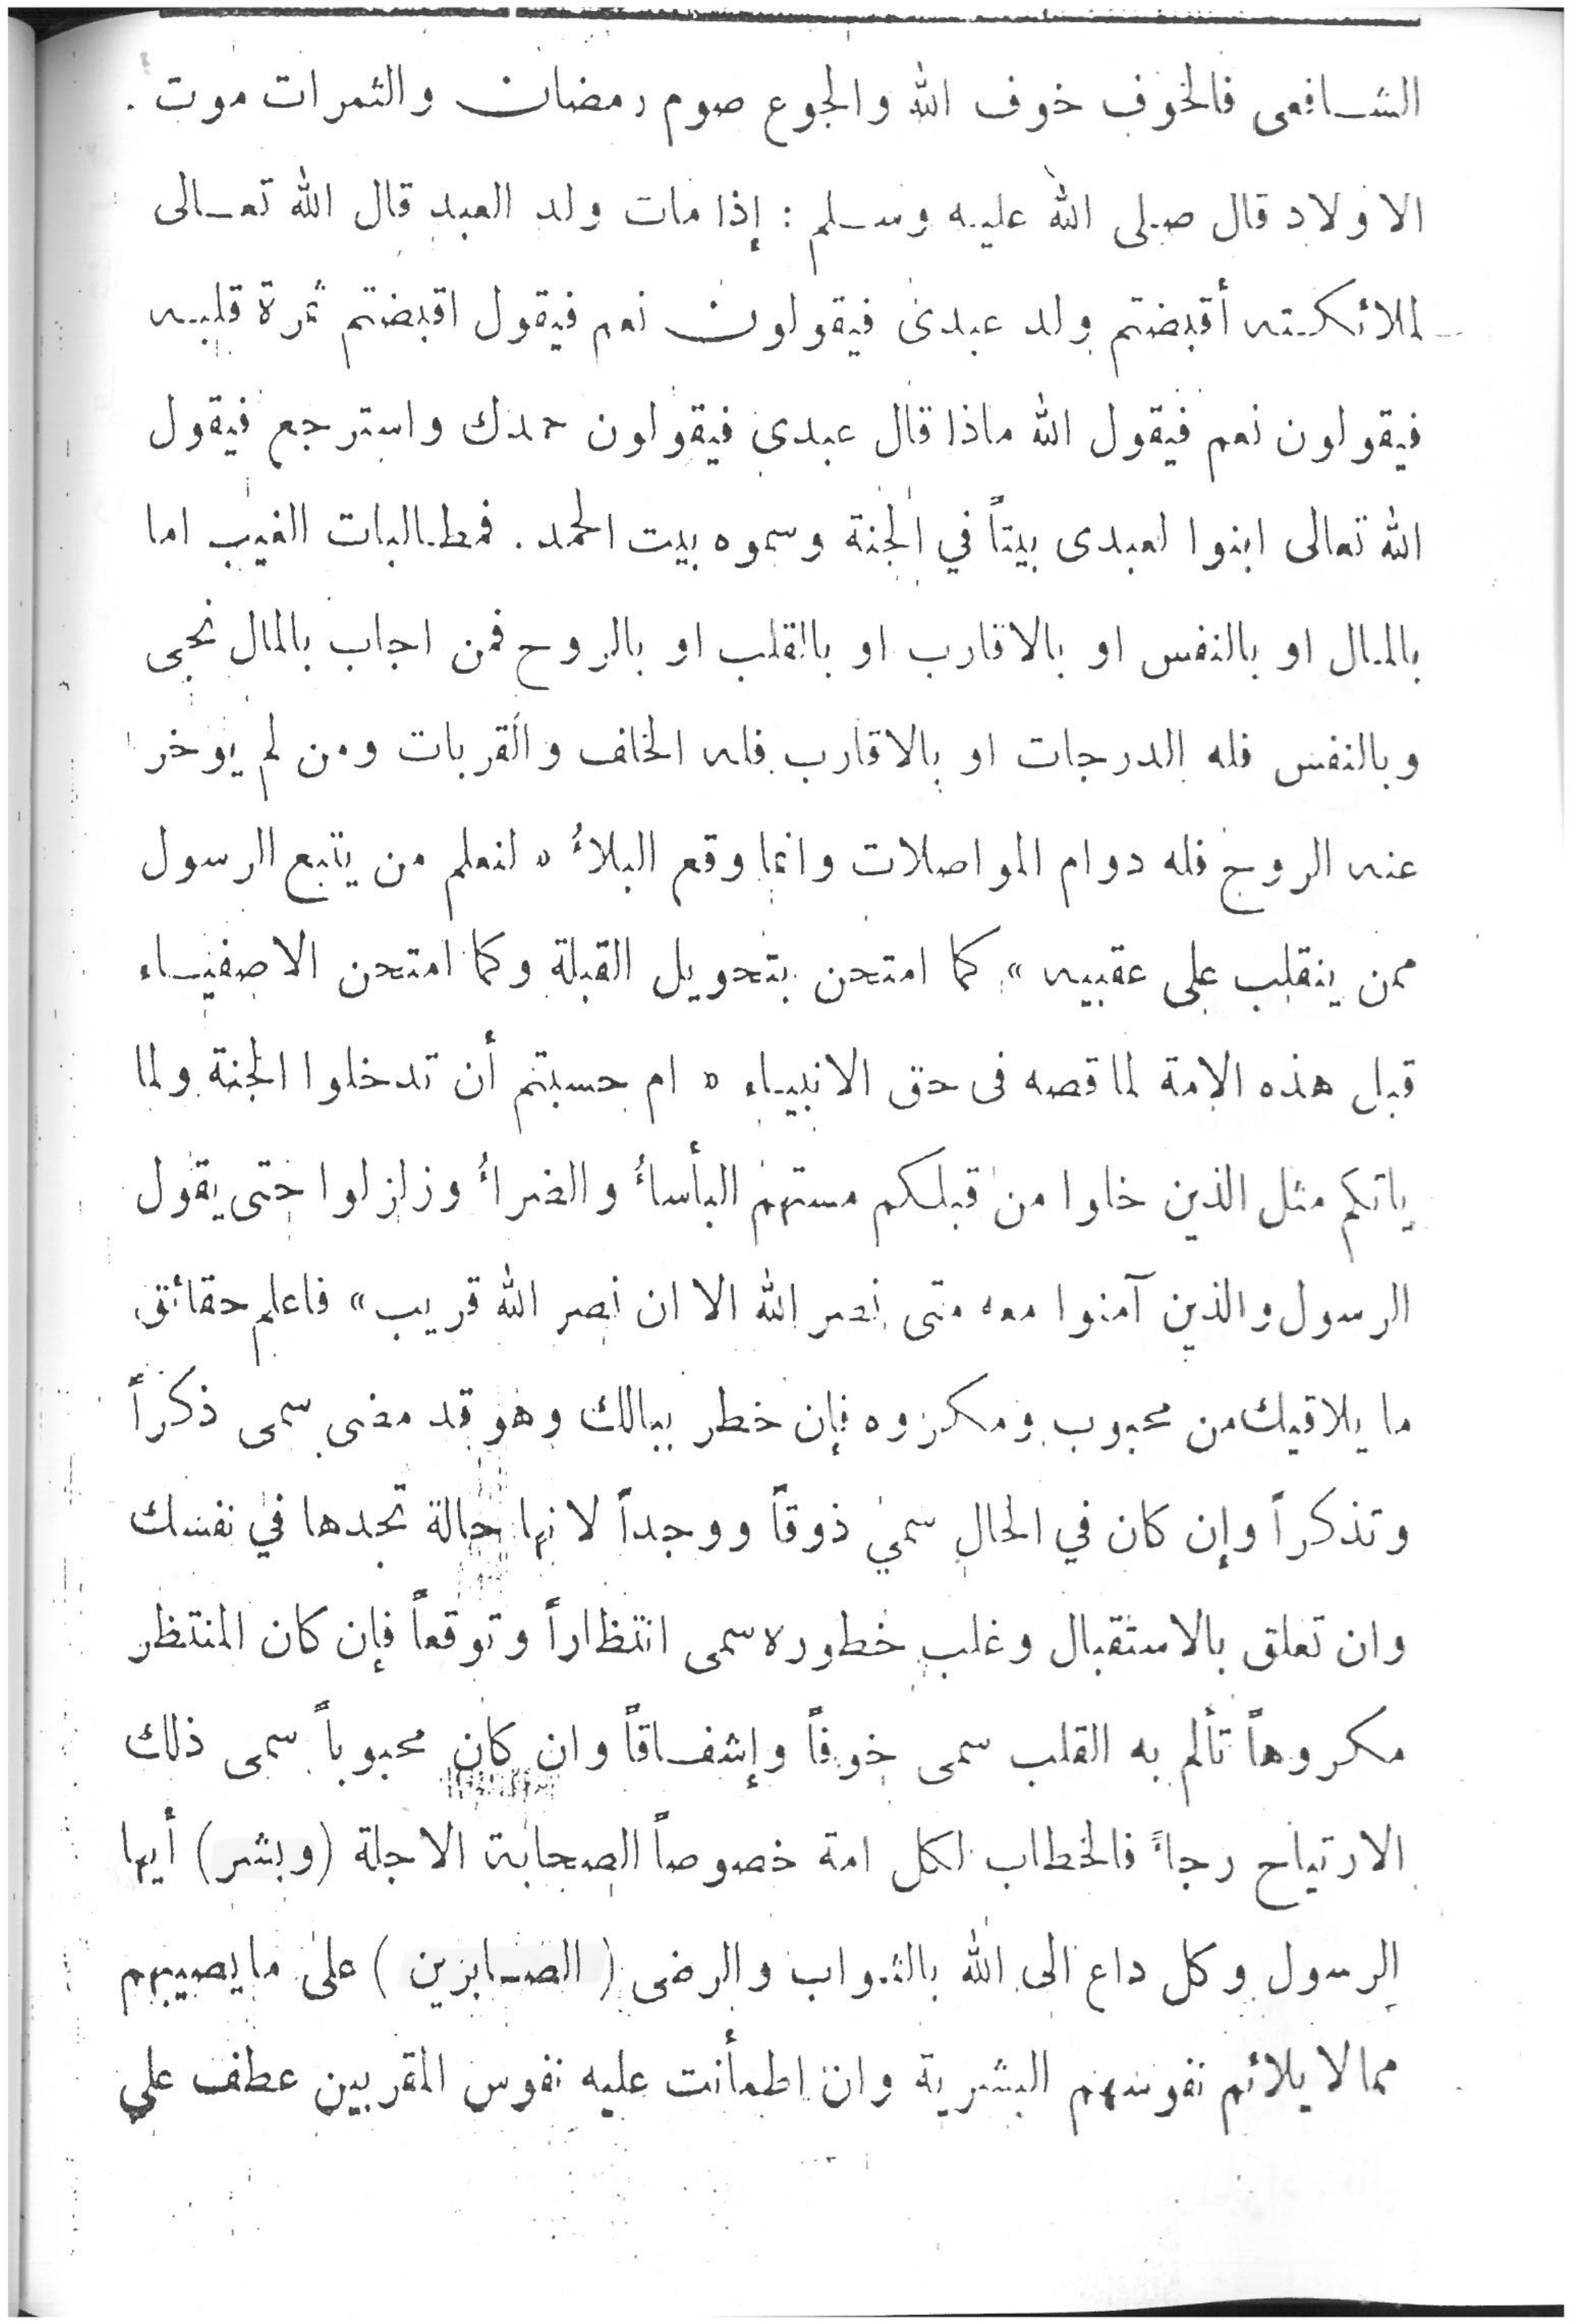 الشافعى فالخوف خوف الله والجوع صوم رمضان والثمرات موت .
الاولاد قال صلى الله عليه وسلم : إذا مات ولد العبد قال الله تعالى
لملائكته أقبضتم ولد عبدى فيقولون نعم فيقول اقبضتم ثمرة قلبه
فيقولون نعم فيقول الله ماذا قال عبدى فيقولون حمدك واسترجع فيقول
الله تعالى ابنوا لعبدى بيتاً في الجنة وسموه بيت الحمد . فمطالبات الغيب اما
بالمال او بالنفس او بالاقارب او بالقلب او بالروح فمن اجاب بالمال نجى
وبالنفس فله الدرجات او بالاقارب فله الخلف والقربات ومن لم يوخر
عنه الروح فله دوام المواصلات وانما وقع البلاءُ « لنعلم من يتبع الرسول
ممن ينقلب على عقبيه » كما امتحن بتحويل القبلة وكما امتحن الاصفياء
قبل هذه الامة لما قصه فى حق الانبياء « ام حسبتم أن تدخلوا الجنة ولما
ياتكم مثل الذين خلوا من قبلكم مستهم البأساءُ والضراءُ وزلزلوا حتى يقول
الرسول والذين آمنوا معه متى نصر الله الا ان نصر الله قريب » فاعلم حقائق
ما يلاقيك من محبوب ومكروه فإن خطر ببالك وهو قد مضى سمى ذكراً
وتذكراً وإن كان في الحال سمي ذوقاً ووجداً لانها حالة تجدها في نفسك
وان تعلق بالاستقبال وغلب خطوره سمى انتظاراً وتوقعاً فإن كان المنتظر
مكروهاً تألم به القلب سمى خوفاً وإشفاقاً وان كان محبوباً سمى ذلك
الارتياح رجاءً فالخطاب لكل امة خصوصاً الصحابة الاجلة (وبشر) أيها
الرسول وكل داع الى الله بالثواب والرضى ( الصابرين ) على ما يصيبهم
مما لا يلائم نفوسهم البشرية وان اطمأنت عليه نفوس المقربين عطف على